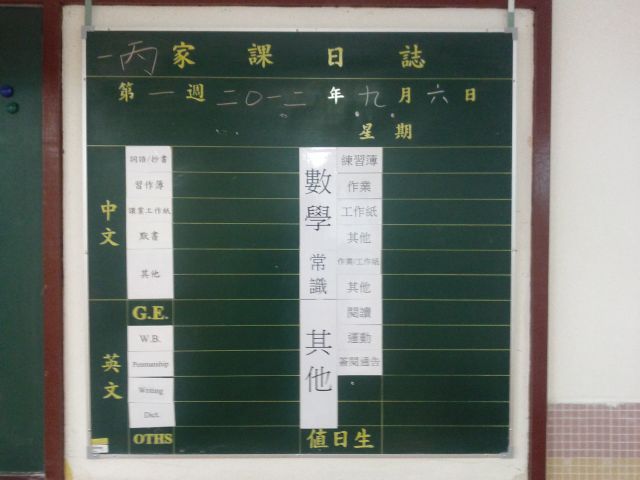 一丙 家課日誌
第一週 二〇一二年九月六日
星期
中文
詞語/抄書
習作簿
讀寫工作紙
默書
其他
英文
G.E.
W.B.
Penmanship
Writing
Dict.
OTHS
數學
練習簿
作業
工作紙
其他
常識
作業/工作紙
其他
其他
閱讀
運動
簽閱通告
值日生